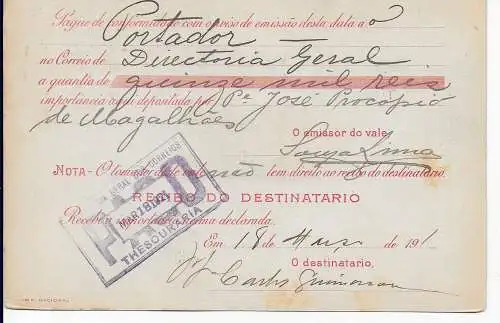 Pague de conformidade com o aviso de emissão desta data a o
Portador
no Correio de Directoria Geral
a quantia de quinze mil reis
importancia depositada por Pe José Procopio
de Magalhães
O emissor do vale,
Souza Lima
NOTA - O tomador deste vale não tem direito ao recibo do destinatario.
RECIBO DO DESTINATARIO
Recebeu a declarada.
Em 18 de de 191
O destinatario,
Carlos
PAGO
THESOURARIA